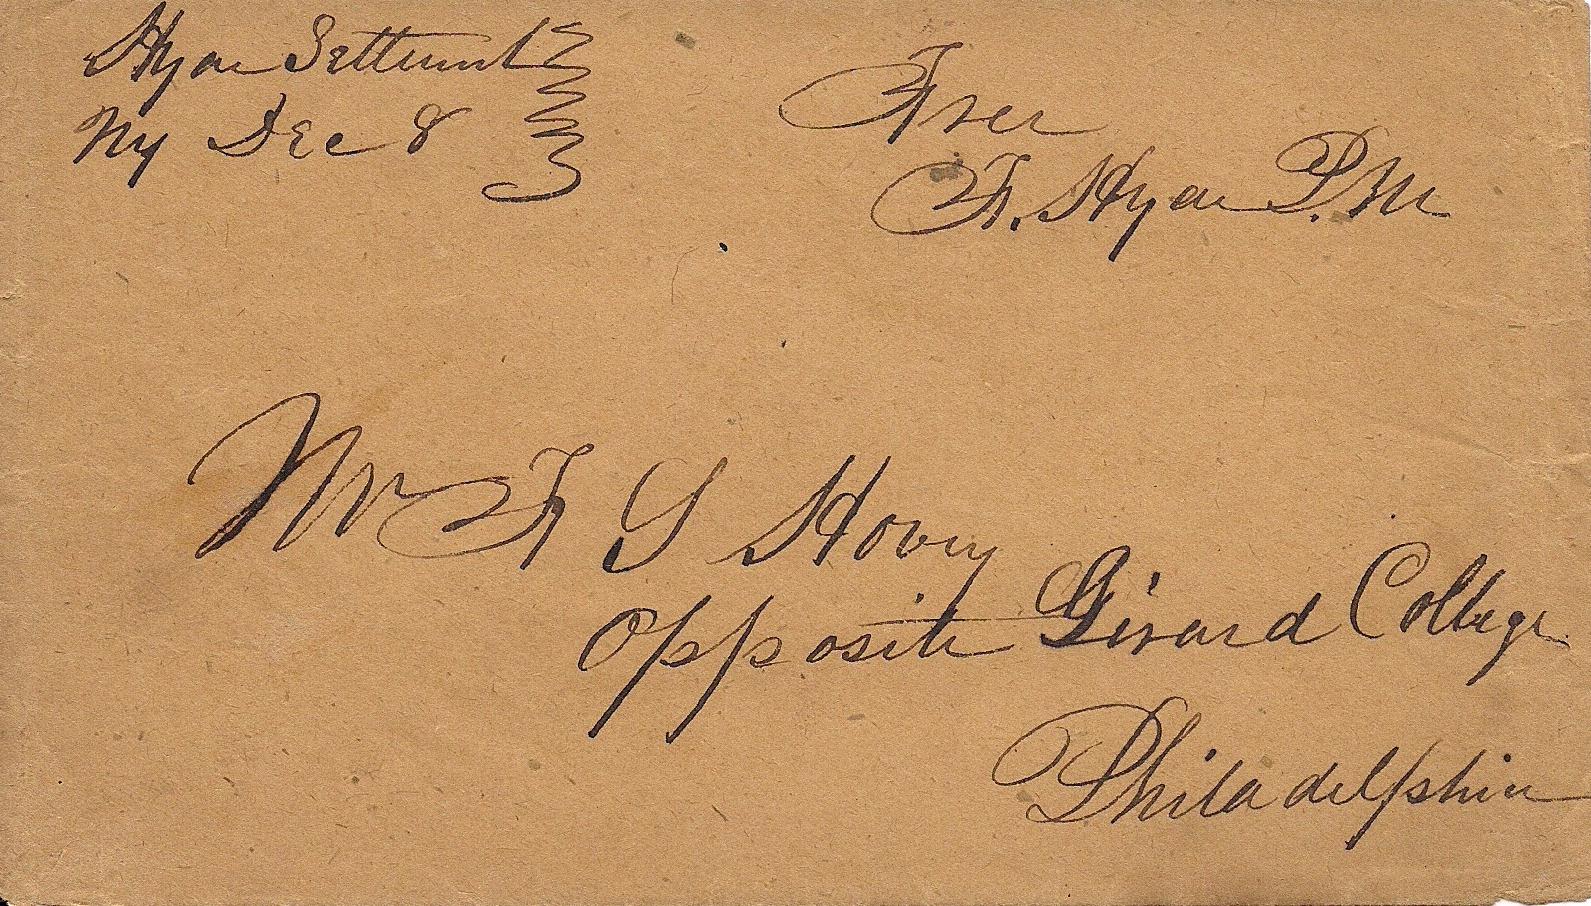 Hyar Settlemt
Ny Dec 8
Free
F. Hyar P.M.
Mr F S Hovey
Opposite Girard College
Philadelphia